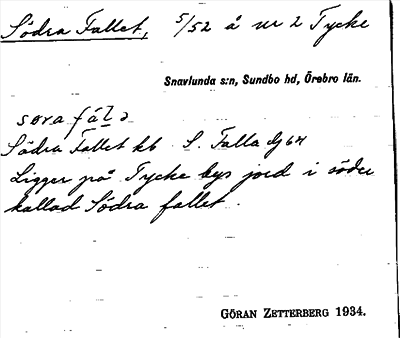 Södra Fallet, 5/52 å nr 2 Tycke
Snavlunda s:n, Sundbo hd, Örebro län.
sɷra fál ə
Södra Fallet kb S. Falla dj 64
Ligger på Tycke bys jord i söder
kallad Södra fallet.
GÖRAN ZETTERBERG 1934.